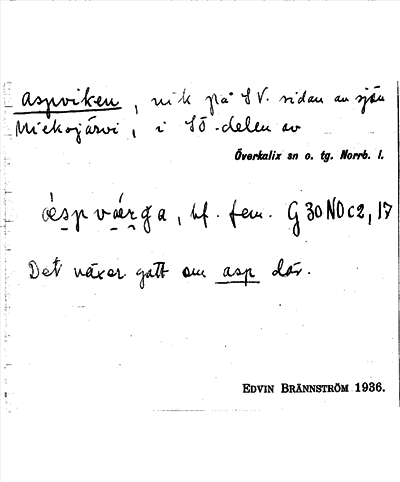 Aspviken, vik på SV. sidan av sjön
Miekojärvi, i SÖ-delen av
Överkalix sn o. tg. Norrb. l.
bf. fem. G30NOc2,17
Det växer gott om asp där.
EDVIN BRÄNNSTRÖM 1936.